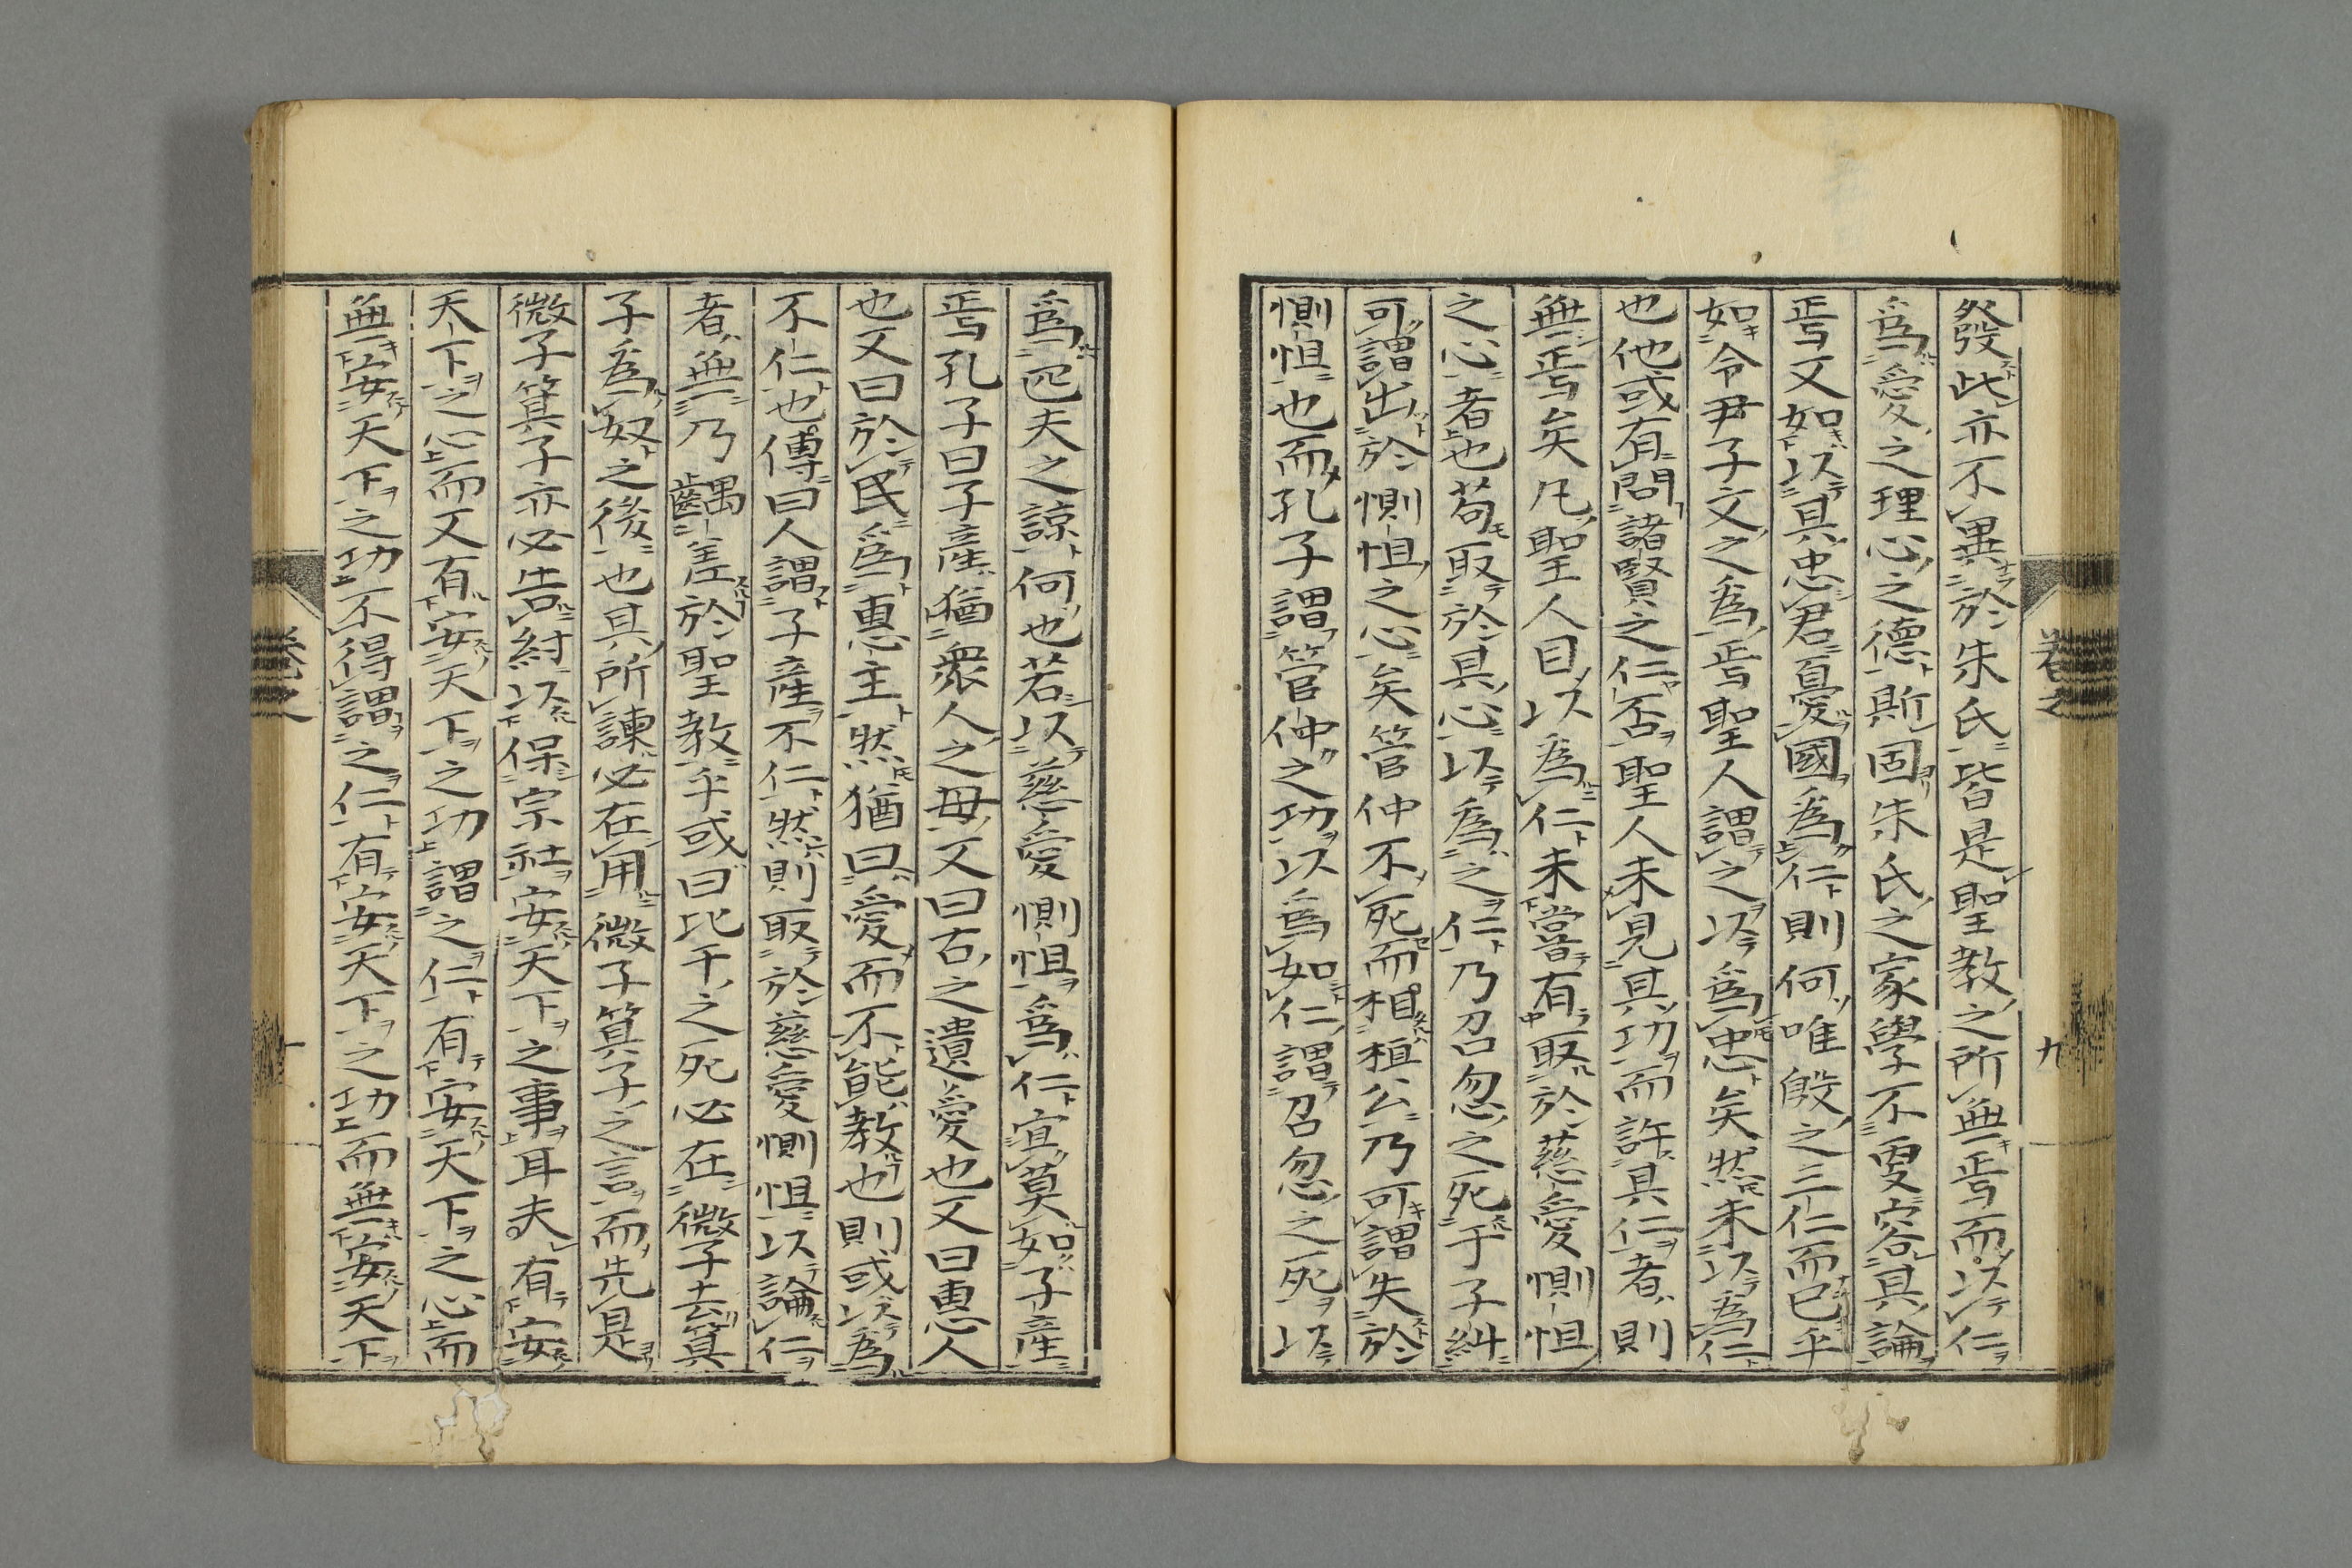 發此亦不異於朱氏皆是聖教之所無焉而以仁
爲愛之理心之德斯固朱氏之家學不更容其論
焉又如以其忠君憂國爲仁則何唯殷之三仁而已乎
如令尹子文之爲焉聖人謂之以爲忠矣然未以爲仁
也他或有問諸賢之仁否聖人未見其功而許其仁者則
無焉矣凡聖人目以爲仁未嘗有取於慈愛惻怛
之心者也苟取於其心以爲之仁乃召忽之死于子糾
可謂出於惻怛之心矣管仲不死而相桓公乃可謂失於
惻怛也而孔子謂管仲之功以爲如仁謂召忽之死以
卷之
九
爲匹夫之諒何也若以慈愛惻怛爲仁宜莫如子産
焉孔子曰子産猶衆人之母又曰古之遺愛也又曰惠人
也又曰於民爲惠主然猶曰愛而不能教也則或以爲
不仁也傳曰人謂子産不仁然則取於慈愛惻怛以論仁
者無乃齵差於聖教乎或曰比干之死必在微子去箕
子爲奴之後也其所諫必在用微子箕子之言而先是
微子箕子亦必告紂以保宗社安天下之事耳夫有安
天下之心而又有安天下之功謂之仁有安天下之心而
無安天下之功不得謂之仁有安天下之功而無安天下
卷之